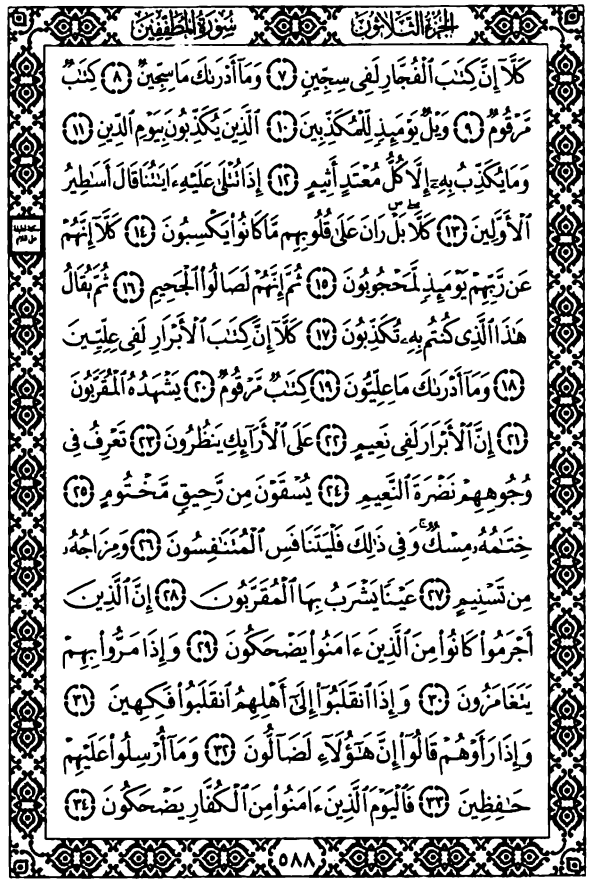 الجزء الثلاثون سورة المطففين
كَلَّآ إِنَّ كِتَٰبَ ٱلْفُجَّارِ لَفِى سِجِّينٍ ٧ وَمَآ أَدْرَىٰكَ مَا سِجِّينٌ ٨ كِتَٰبٌ
مَّرْقُومٌ ٩ وَيْلٌ يَوْمَئِذٍ لِّلْمُكَذِّبِينَ ١٠ ٱلَّذِينَ يُكَذِّبُونَ بِيَوْمِ ٱلدِّينِ ١١
وَمَا يُكَذِّبُ بِهِۦٓ إِلَّا كُلُّ مُعْتَدٍ أَثِيمٍ ١٢ إِذَا تُتْلَىٰ عَلَيْهِ ءَايَٰتُنَا قَالَ أَسَٰطِيرُ
ٱلْأَوَّلِينَ ١٣ كَلَّا ۖ بَلْ ۜ رَانَ عَلَىٰ قُلُوبِهِم مَّا كَانُوا۟ يَكْسِبُونَ ١٤ كَلَّآ إِنَّهُمْ
عَن رَّبِّهِمْ يَوْمَئِذٍ لَّمَحْجُوبُونَ ١٥ ثُمَّ إِنَّهُمْ لَصَالُوا۟ ٱلْجَحِيمِ ١٦ ثُمَّ يُقَالُ
هَٰذَا ٱلَّذِى كُنتُم بِهِۦ تُكَذِّبُونَ ١٧ كَلَّآ إِنَّ كِتَٰبَ ٱلْأَبْرَارِ لَفِى عِلِّيِّينَ
١٨ وَمَآ أَدْرَىٰكَ مَا عِلِّيُّونَ ١٩ كِتَٰبٌ مَّرْقُومٌ ٢٠ يَشْهَدُهُ ٱلْمُقَرَّبُونَ
٢١ إِنَّ ٱلْأَبْرَارَ لَفِى نَعِيمٍ ٢٢ عَلَى ٱلْأَرَآئِكِ يَنظُرُونَ ٢٣ تَعْرِفُ فِى
وُجُوهِهِمْ نَضْرَةَ ٱلنَّعِيمِ ٢٤ يُسْقَوْنَ مِن رَّحِيقٍ مَّخْتُومٍ ٢٥
خِتَٰمُهُۥ مِسْكٌ ۚ وَفِى ذَٰلِكَ فَلْيَتَنَافَسِ ٱلْمُتَنَٰفِسُونَ ٢٦ وَمِزَاجُهُۥ
مِن تَسْنِيمٍ ٢٧ عَيْنًا يَشْرَبُ بِهَا ٱلْمُقَرَّبُونَ ٢٨ إِنَّ ٱلَّذِينَ
أَجْرَمُوا۟ كَانُوا۟ مِنَ ٱلَّذِينَ ءَامَنُوا۟ يَضْحَكُونَ ٢٩ وَإِذَا مَرُّوا۟ بِهِمْ
يَتَغَامَزُونَ ٣٠ وَإِذَا ٱنقَلَبُوٓا۟ إِلَىٰٓ أَهْلِهِمُ ٱنقَلَبُوا۟ فَكِهِينَ ٣١
وَإِذَا رَأَوْهُمْ قَالُوٓا۟ إِنَّ هَٰٓؤُلَآءِ لَضَآلُّونَ ٣٢ وَمَآ أُرْسِلُوا۟ عَلَيْهِمْ
حَٰفِظِينَ ٣٣ فَٱلْيَوْمَ ٱلَّذِينَ ءَامَنُوا۟ مِنَ ٱلْكُفَّارِ يَضْحَكُونَ ٣٤
٥٨٨